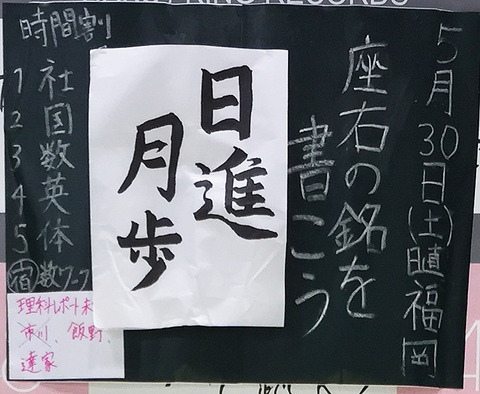 5月30日(土)晴福岡
座右の銘を
書こう
日進
月歩
時間割
1 社
2 国
3 数
4 英
5 体
宿 数ワーク
理科レポート未
市川、飯野、
達家